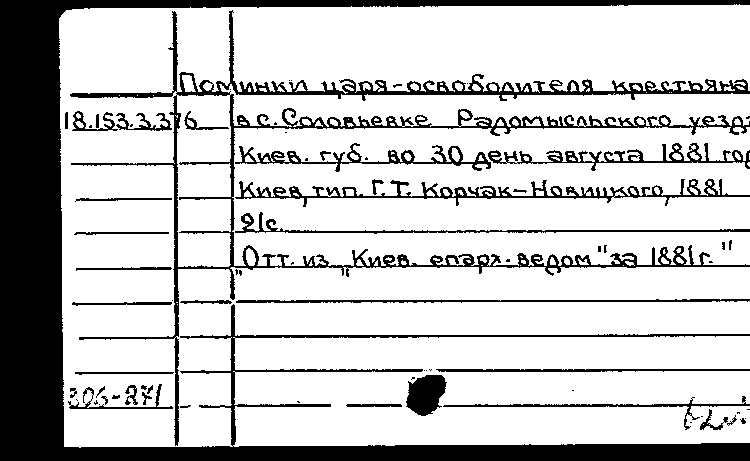 Поминки царя-освободителя крестьяна
18.153.3.376 в с. Соловьевке Радомысльского уезда
Киев. губ. во 30 день августа 1881 год
Киев, тип. Г.Т. Корчак-Новицкого, 1881.
21с.
"Отт. из "Киев. епарх. ведом" за 1881г."
306-271